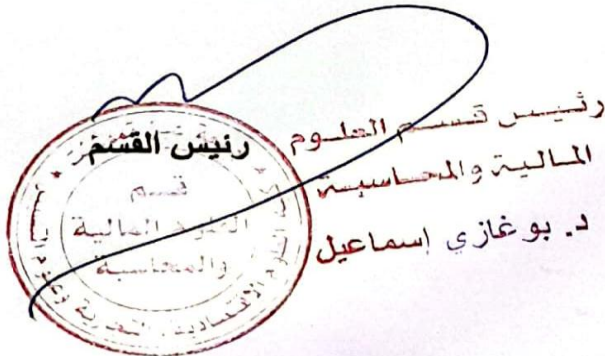 رئيس قسم العلوم
المالية والمحاسبة
د. بوغازي إسماعيل
رئيس القسم
قسم
العلوم المالية
والمحاسبة